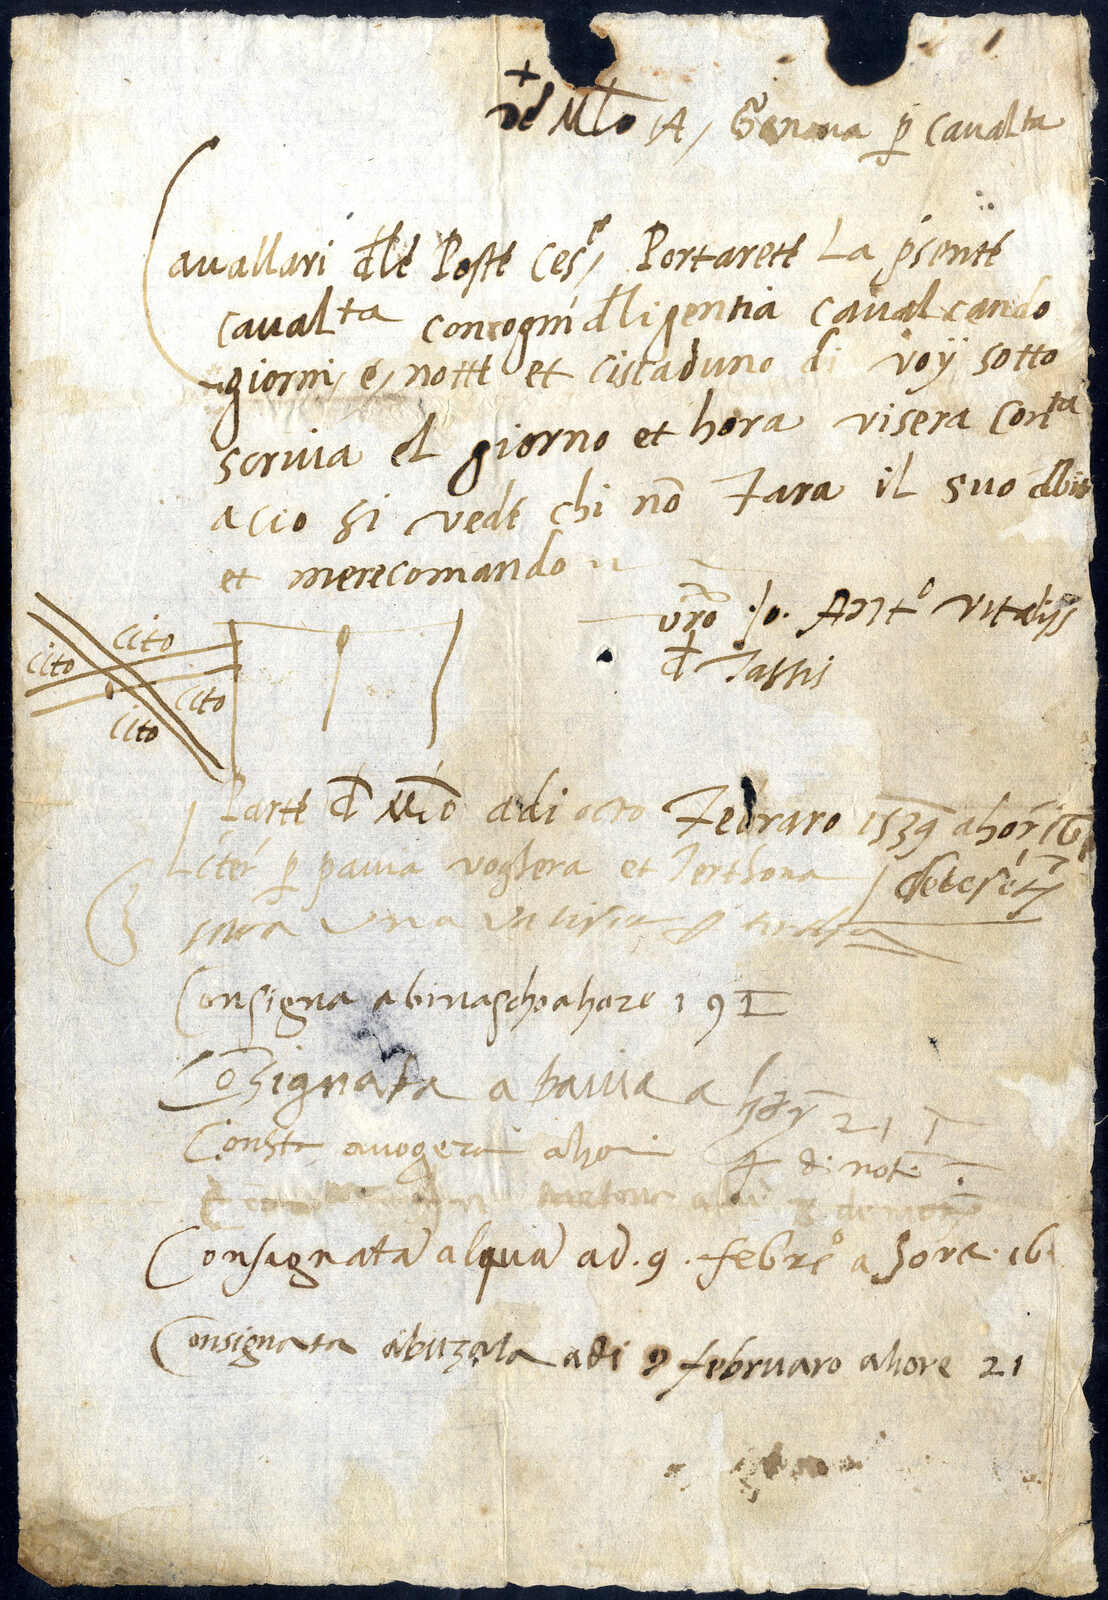 +
De Mlo A, Genova p cavalta
Cavallari dle Poste Ces, Portarete La psente
cavalta con ogni dligentia cavalcando
giorni, e, notte et ciscaduno di voy sotto
scrivia el giorno et hora visera conta
acio si vede chi nō fara il suo dbito
et me recomando
vro Jo. Antº vitalis
d Tassis
cito
cito
cito
cito
Parte d Mlo adi octo Febraro 1539 ahor
p pavia voghera et Terthona
una
Consigna a binascho a hore 19
Cōsignata a pavia a hor 21
Consta a vogera a hor 4 di note
Consignata alqua ad . 9 . febreº a hore . 16
Consignata abuzala adi 9 februaro ahore 21